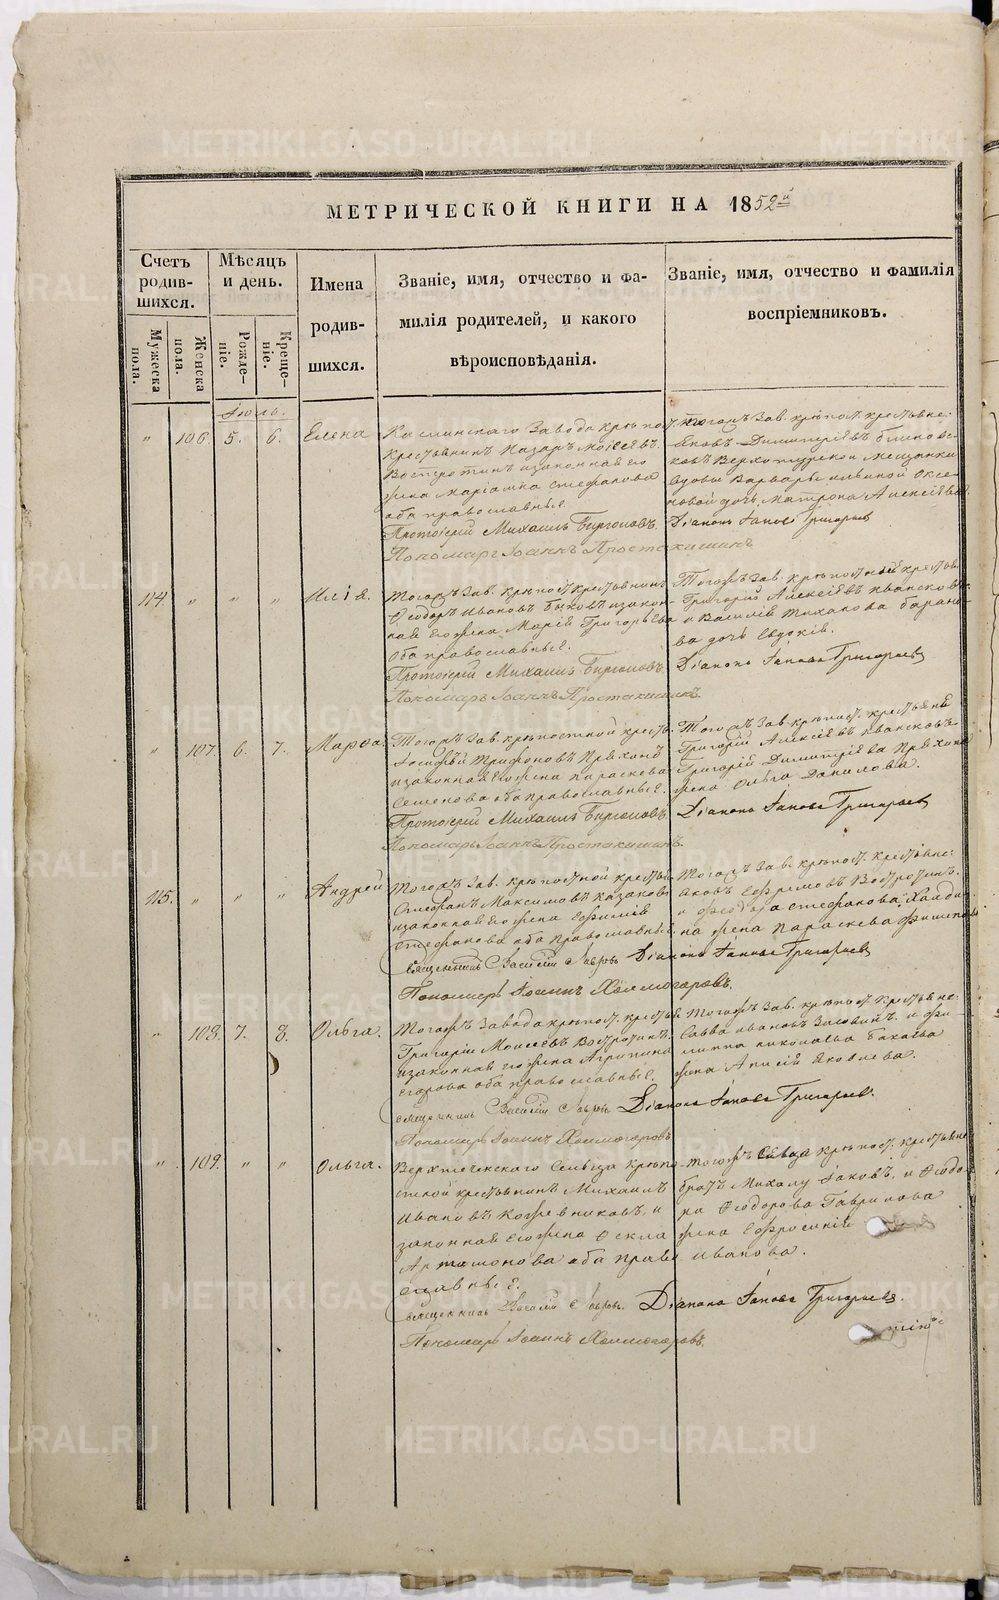 METRIKI.GASO-URAL.RU
МЕТРИЧЕСКОЙ КНИГИ НА 1852й
Счетъ родив-шихся.
Мужеска пола.
Женска пола.
Мѣсяцъ и день.
Рожде-ніе.
Креще-ніе.
Имена
родив-
шихся.
Званіе, имя, отчество и фа-
милія родителей, и какого
вѣроисповѣданія.
Званіе, имя, отчество и фамилія
воспріемниковъ.
Іюль.
" 106. 5. 6. Елена
Каслинскаго Завода крѣпо
крестьянинъ Назаръ Моисеевъ
Востротинъ и законная его
жена Маріамна Стефанова
оба православные.
Протоіерей Михаилъ Бирюковъ.
Пономарь Іоаннъ Простокишинъ
Тогожъ Зав. крѣпост. крестьяне:
Димитріевъ
ковъ Верхотурской мещанки
вдовы Варвары Оксе-
новой дочь Матрона Алексѣева.
Діаконъ Іаковъ Григорьевъ
114. " " " Илія.
Тогожъ Зав. крѣпост. крестьянинъ
Ѳеодоръ Ивановъ Быковъ и закон-
ная его жена Марія Григорьева
оба православные.
Протоіерей Михаилъ Бирюковъ.
Пономарь Іоаннъ Простокишинъ
Тогожъ Зав. крѣпостной крестьян
Григорій Алексѣевъ
и Василія Тихонова Барано-
ва дочь Евдокія.
Діаконъ Іаковъ Григорьевъ
" 107. 6. 7. Марѳа.
Тогожъ Зав. крѣпостной крестья
Іосифъ Трифоновъ
и законная его жена Параскева
Семенова оба православные.
Протоіерей Михаилъ Бирюковъ
Пономарь Іоаннъ Простокишинъ.
Тогожъ Зав. крѣпост. крестьяне
Григорій Алексѣевъ
Григорій Димитріева
жена Ольга Данилова.
Діаконъ Іаковъ Григорьевъ
115. " " " Андрей
Тогожъ Зав. крѣпостной крестья
Стефанъ Максимовъ Казаковъ
и законная его жена Ефимія
Стефанова оба православные.
Священникъ Василій Лавровъ
Пономарь Іоаннъ Холмогоровъ.
Тогожъ Зав. крѣпост. крестьяне:
Іаковъ Ефремовъ Востротинъ.
и Стефанова
на жена Параскева
Діаконъ Іаковъ Григорьевъ
" 108. 7. 8. Ольга.
Тогожъ Завода крѣпост. крестья
Григорій Моисеевъ Востротинъ
и законная его жена Агрипина
Егорова оба православные.
Священникъ Василій Лавровъ
Пономарь Іоаннъ Холмогоровъ
Тогожъ Зав. крѣпост. крестьяне:
Савва Ивановъ и Фи-
липпа Николаева
жена Анисія Яковлева.
Діаконъ Іаковъ Григорьевъ.
" 109. " " Ольга.
Верхтеченскаго Сельца крѣпо-
стной крестьянинъ Михаилъ
Ивановъ Кожевниковъ, и
законная его жена Ѳекла
Артамонова оба право
славные.
Священникъ Василій Лавровъ.
Пономарь Іоаннъ Холмогоровъ.
Тогожъ Сельца крѣпост. крестьяне
братъ Михалу Іаковъ, и Ѳеодо-
ра Ѳеодорова Гаврилова
жена Ефросинія
Иванова.
Діаконъ Іаковъ Григорьевъ.